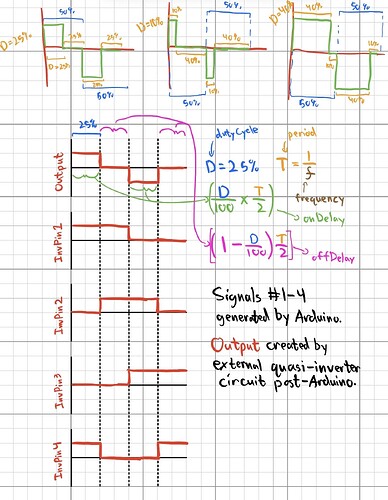 50%
D=25%
25%
25%
D=25%
25%
50%
D=10%
10%
50%
40%
40%
10%
50%
D=40%
40%
50%
10%
10%
40%
50%
25%
Output
dutyCycle
D=25%
period
T = 1/f
frequency
(D/100 × T/2)
onDelay
[(1 - D/100) T/2]
offDelay
InvPin1
InvPin2
Signals #1-4
generated by Arduino.
Output created by
external quasi-inverter
circuit post-Arduino.
InvPin3
InvPin4